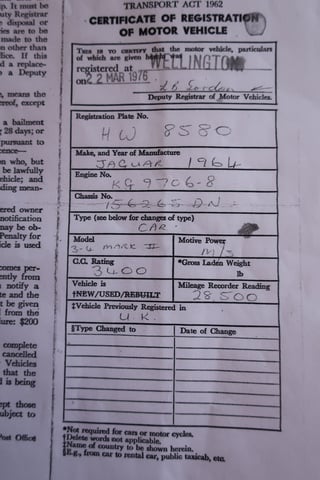 TRANSPORT ACT 1962
CERTIFICATE OF REGISTRATION
OF MOTOR VEHICLE
THIS IS TO CERTIFY that the motor vehicle, particulars
of which are given was
registered at WELLINGTON
on 22 MAR 1976
Deputy Registrar of Motor Vehicles.
Registration Plate No.
HW 8580
Make, and Year of Manufacture
JAGUAR 1964
Engine No.
KG 9706-8
Chassis No.
156265 DN
Type (see below for changes of type)
CAR
Model
3-4 MARK II
Motive Power
M/S
C.C. Rating
3400
*Gross Laden Weight
lb
Vehicle is
†NEW/USED/REBUILT
Mileage Recorder Reading
28,500
‡Vehicle Previously Registered in
U K.
§Type Changed to
Date of Change
*Not required for cars or motor cycles.
†Delete words not applicable.
‡Name of country to be shown herein.
§E.g., from car to rental car, public taxicab, etc.
p. It must be
uty Registrar
e disposal or
ies are to be
made to the
n other than
fice. If this
d a replace-
o a Deputy
e, means the
ereof, except
a bailment
28 days; or
pursuant to
cence—
n who, but
be lawfully
ehicle; and
ding mean-
ered owner
notification
may be ob-
Penalty for
icle is used
comes per-
ently from
notify a
te and the
t be given
from the
ure: $200
complete
cancelled
Vehicles
that the
l is being
ept those
ubject to
Post Office